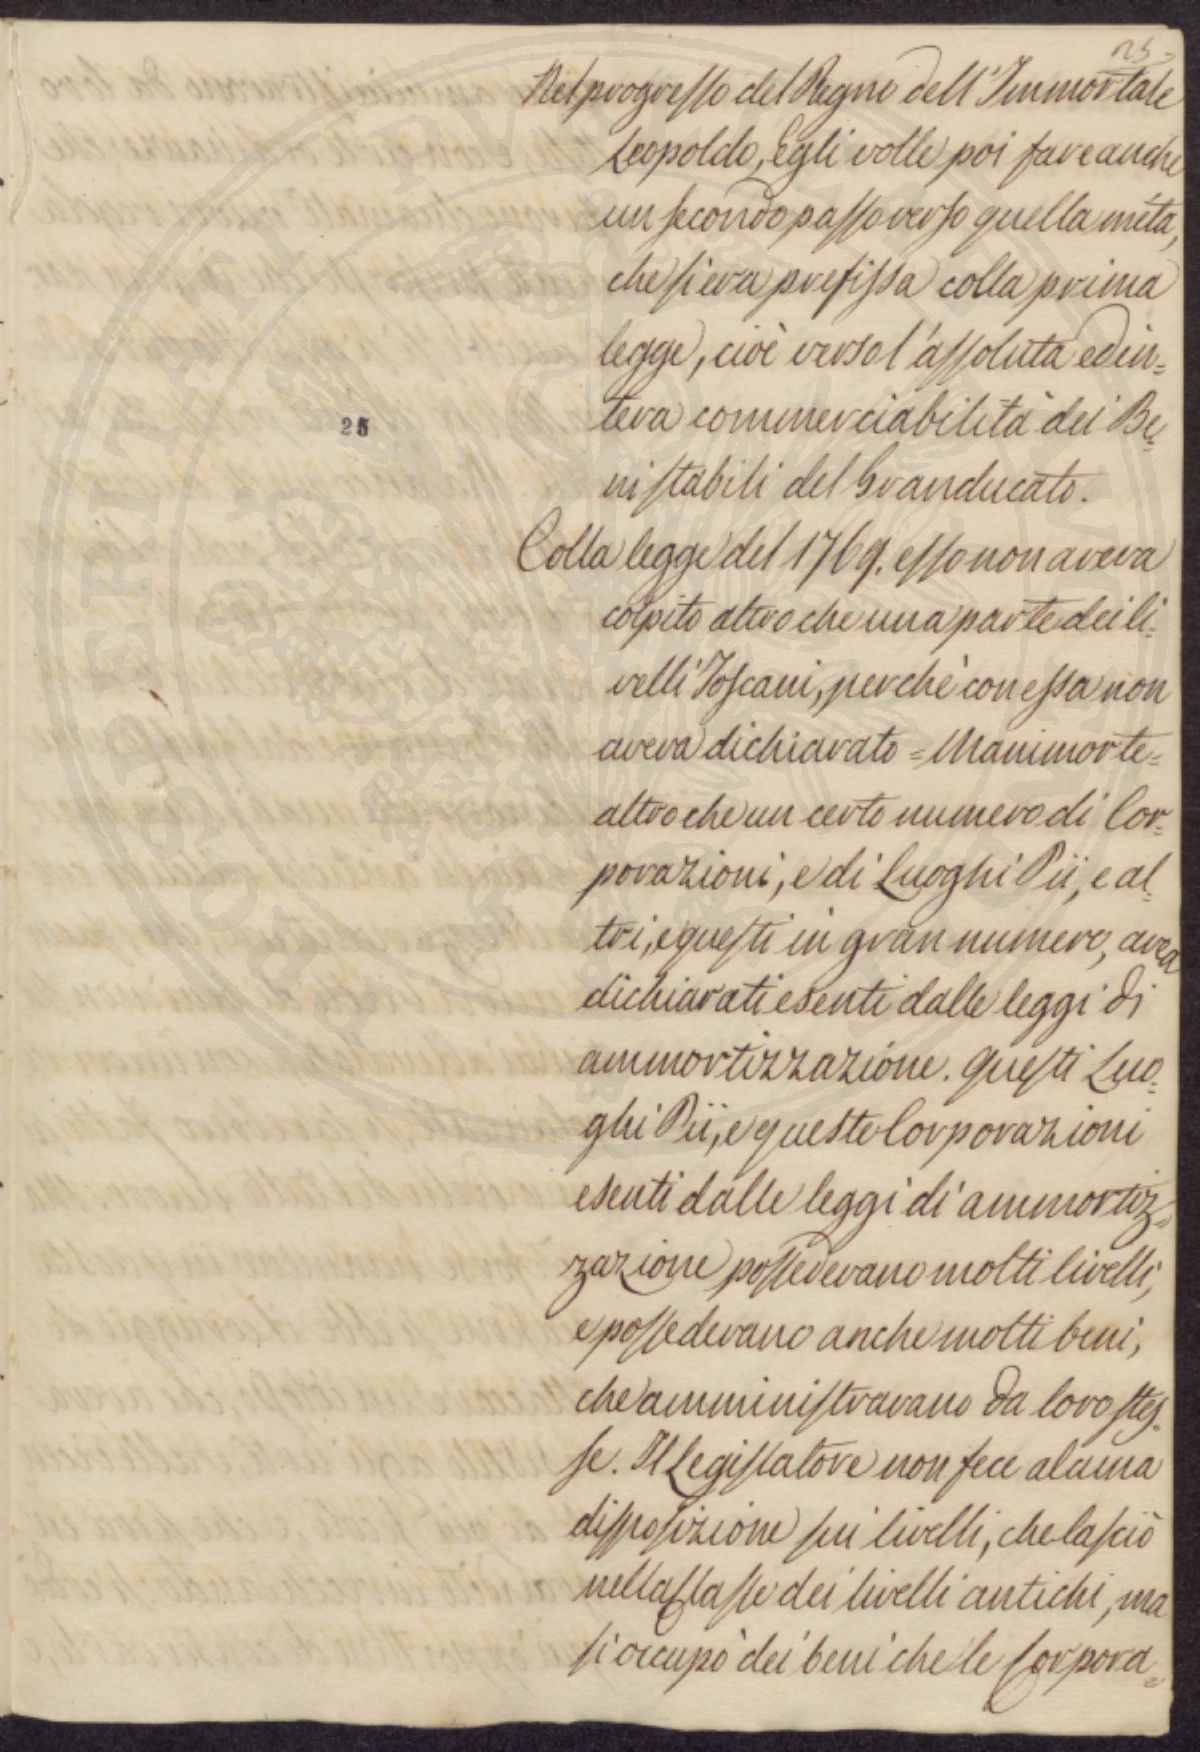 25.
Nel progresso del Regno dell'Immortale
Leopoldo, Egli volle poi fare anche
un secondo passo verso quella mèta,
che si era prefissa colla prima
legge, cioè verso l'assoluta ed in=
tera commerciabilità dei Be=
ni stabili del Granducato.
Colla legge del 1769. esso non aveva
colpito altro che una parte dei li=
velli Toscani, perchè con essa non
aveva dichiarato = Manimorte =
altro che un certo numero di Cor=
porazioni, e di Luoghi Pii, e al=
tri, e questi in gran numero, avea
dichiarati esenti dalle leggi di
ammortizzazione. Questi Luo=
ghi Pii, e queste Corporazioni
esenti dalle leggi di ammortiz=
zazione possedevano molti livelli,
e possedevano anche molti beni,
che amministravano da loro stes=
se. Il Legislatore non fece alcuna
disposizione sui livelli, che lasciò
nella Classe dei livelli antichi, ma
si occupò dei beni che le Corpora=
25
PROSPERITATI